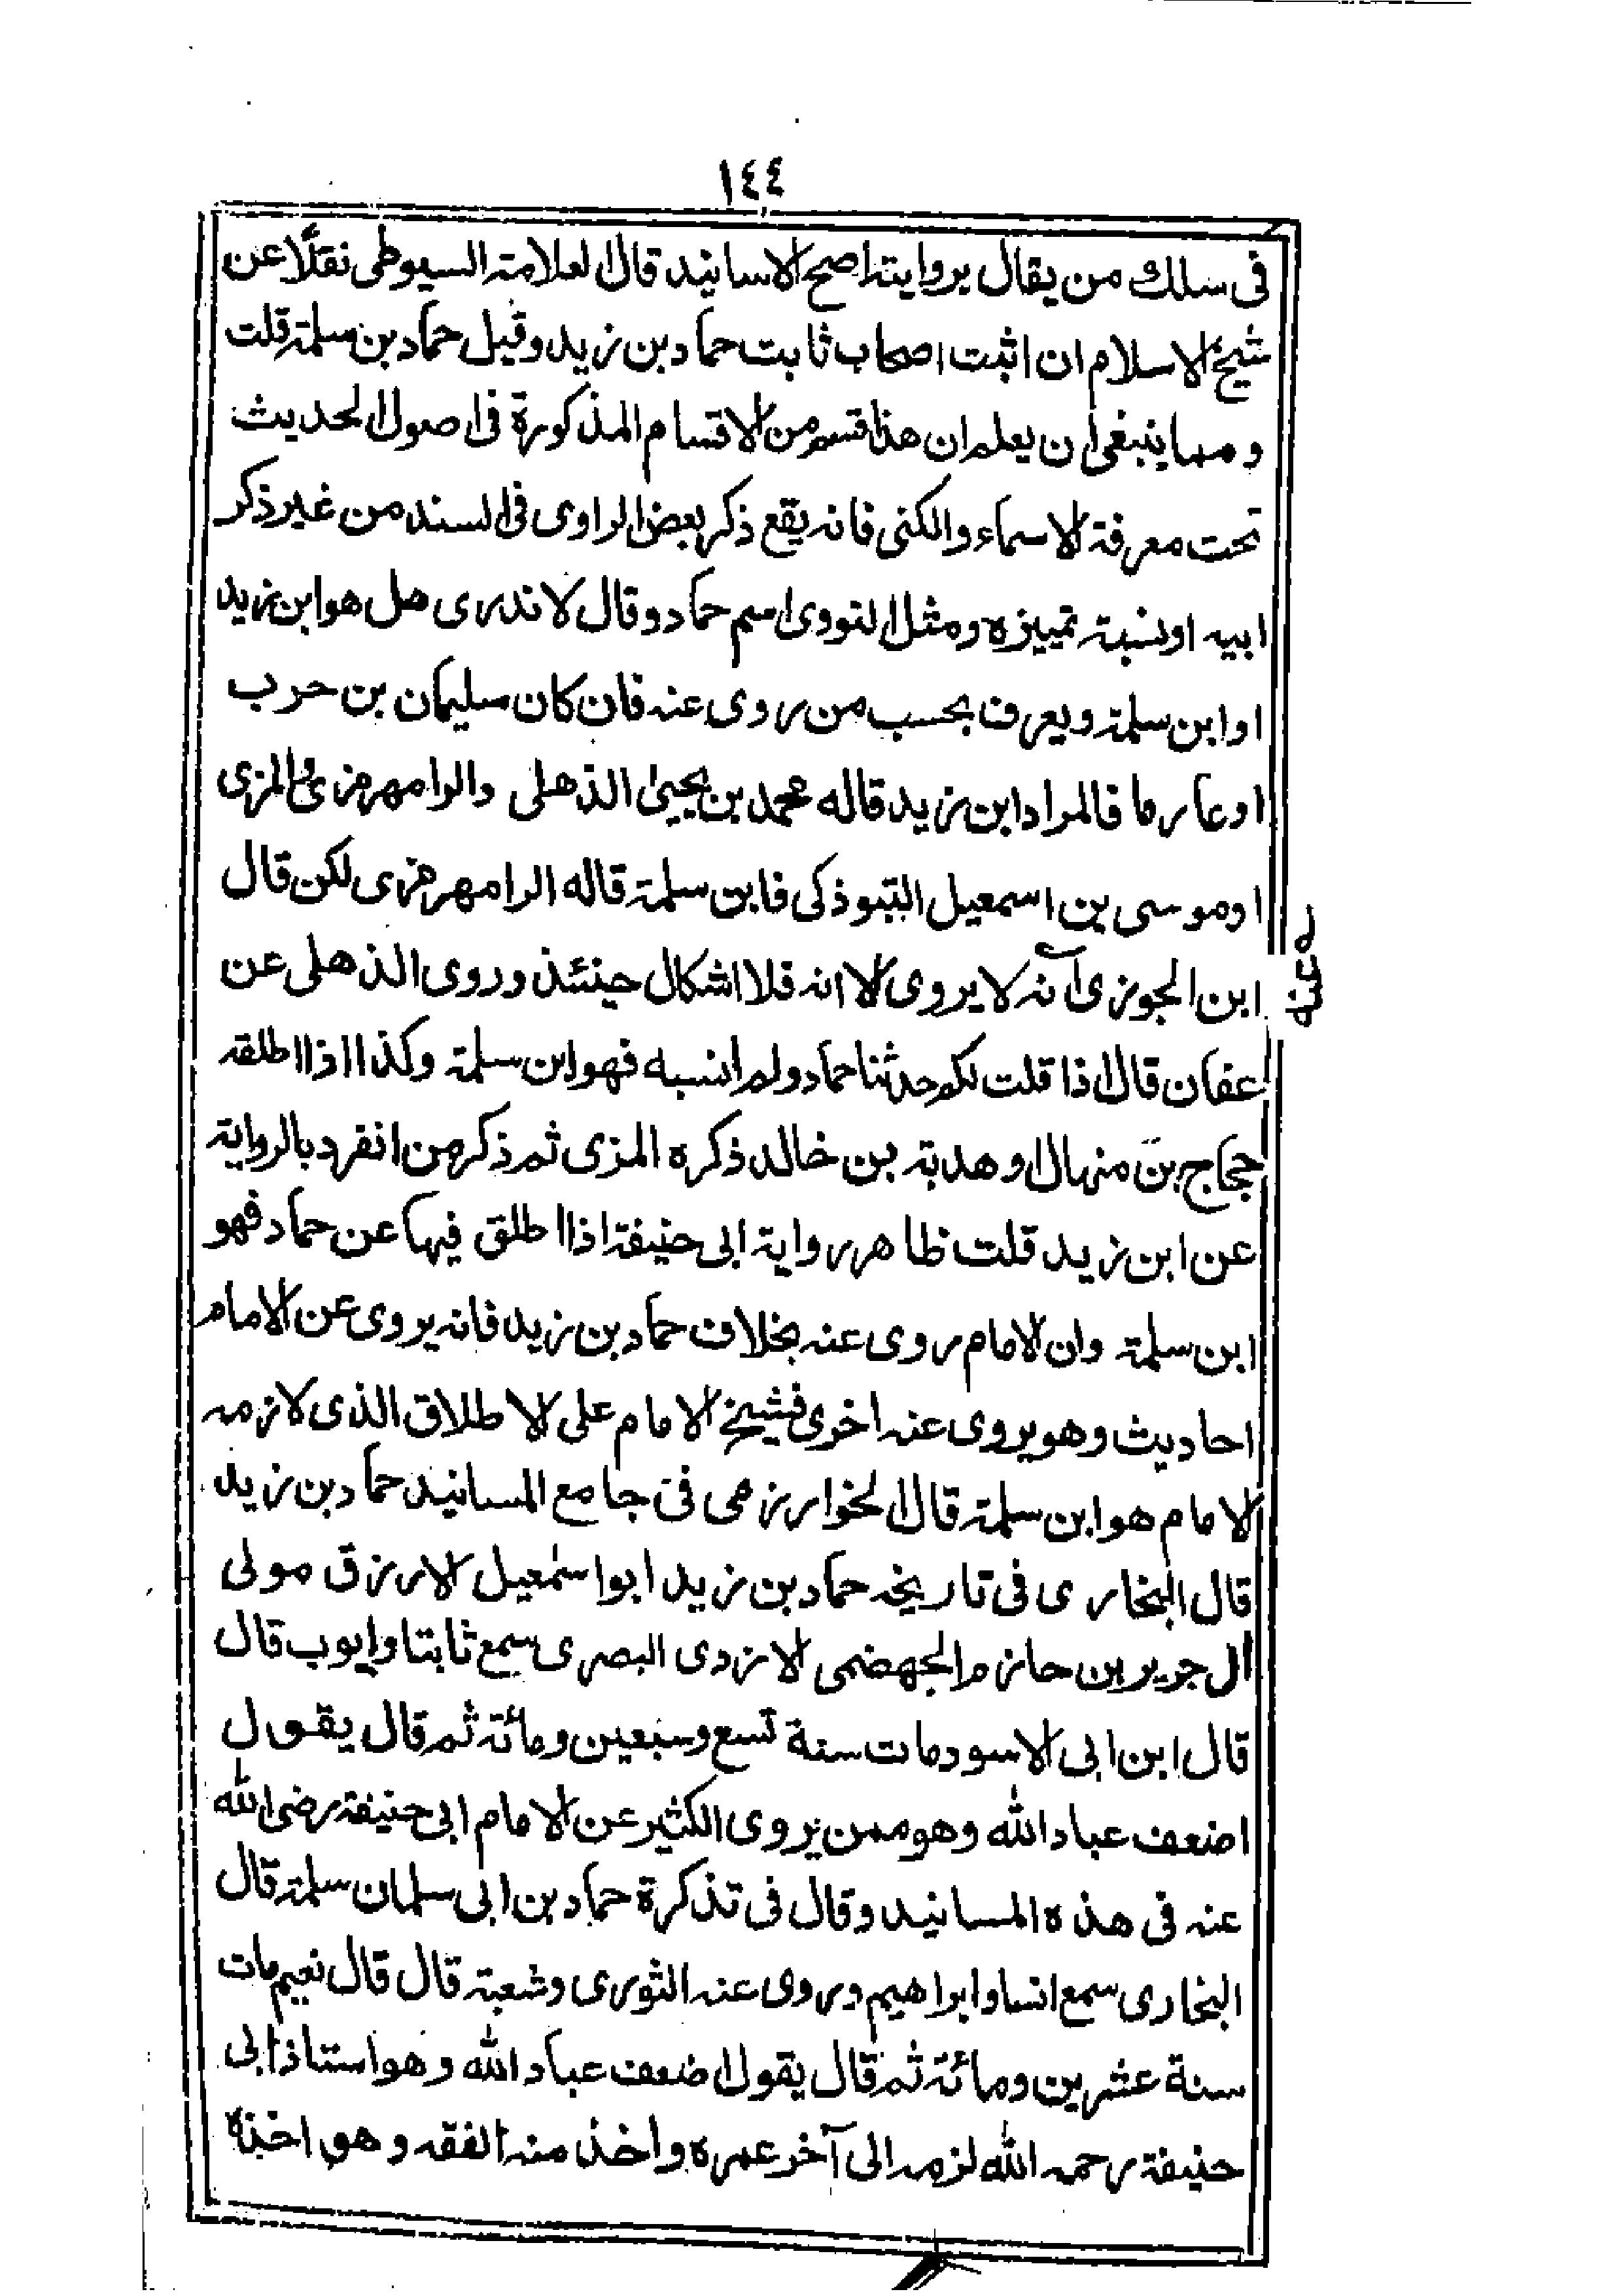 ١٤٤
فى سلك من يقال بروايته اصح الاسانيد قال العلامة السيوطى نقلًا عن
شيخ الاسلام ان اثبت اصحاب ثابت حماد بن زيد وقيل حماد بن سلمة قلت
ومما ينبغى ان يعلم ان هذا قسم من الاقسام المذكورة فى اصول الحديث
تحت معرفة الاسماء والكنى فانه يقع ذكر بعض الراوى فى السند من غير ذكر
ابيه اونسبة تميزه ومثل النووى اسم حماد وقال لا ندرى هل هو ابن زيد
او ابن سلمة ويعرف بحسب من روى عنه فان كان سليمان بن حرب
او عارما فالمراد ابن زيد قاله محمد بن يحيىٰ الذهلى والرامهرمزى والمزى
اوموسى بن اسمعيل التبوذكى فابن سلمة قاله الرامهرمزى لكن قال
ابن الجوزى انه لا يروى الا انه فلا اشكال حينئذ وروى الذهلى عن
عفان قال اذا قلت لكم حدثنا حماد ولم انسبه فهو ابن سلمة وكذا اذا اطلقه
حجاج بن منهال او هدبة بن خالد ذكره المزى ثم ذكر من انفرد بالرواية
عن ابن زيد قلت ظاهر رواية ابى حنيفة اذا اطلق فيها عن حماد فهو
ابن سلمة وان الامام روى عنه بخلاف حماد بن زيد فانه يروى عن الامام
احاديث وهو يروى عنه اخرى فشيخ الامام على الاطلاق الذى لازمه
الامام هو ابن سلمة قال الخوارزمى فى جامع المسانيد حماد بن زيد
قال البخارى فى تاريخه حماد بن زيد ابو اسمٰعيل الازرق مولى
ال جرير بن حازم الجهضمى الازدى البصرى سمع ثابتا وايوب قال
قال ابن ابى الاسود مات سنة تسع وسبعين ومائة ثم قال يقول
اضعف عباد الله وهو ممن يروى الكثير عن الامام ابى حنيفة رضى الله
عنه فى هذه المسانيد وقال فى تذكرة حماد بن ابى سلمان سلمة قال
البخارى سمع انسا وابراهيم وروى عنه الثورى وشعبة قال قال نعيم مات
سنة عشرين ومائة ثم قال يقول اضعف عباد الله وهو استاذ ابى
حنيفة رحمه الله لزمه الى آخر عمره واخذ منه الفقه وهو اخذه